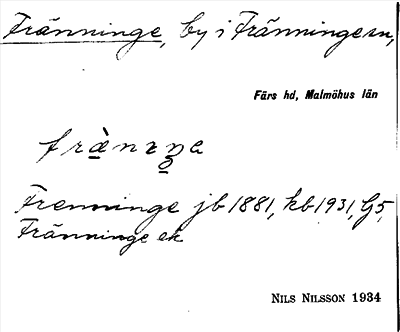 Tränninge, by i Fränninge sn,
Färs hd, Malmöhus län
frànıŋa
Frenninge jb 1881, kb 1931, G5,
Fränninge ek
NILS NILSSON 1934